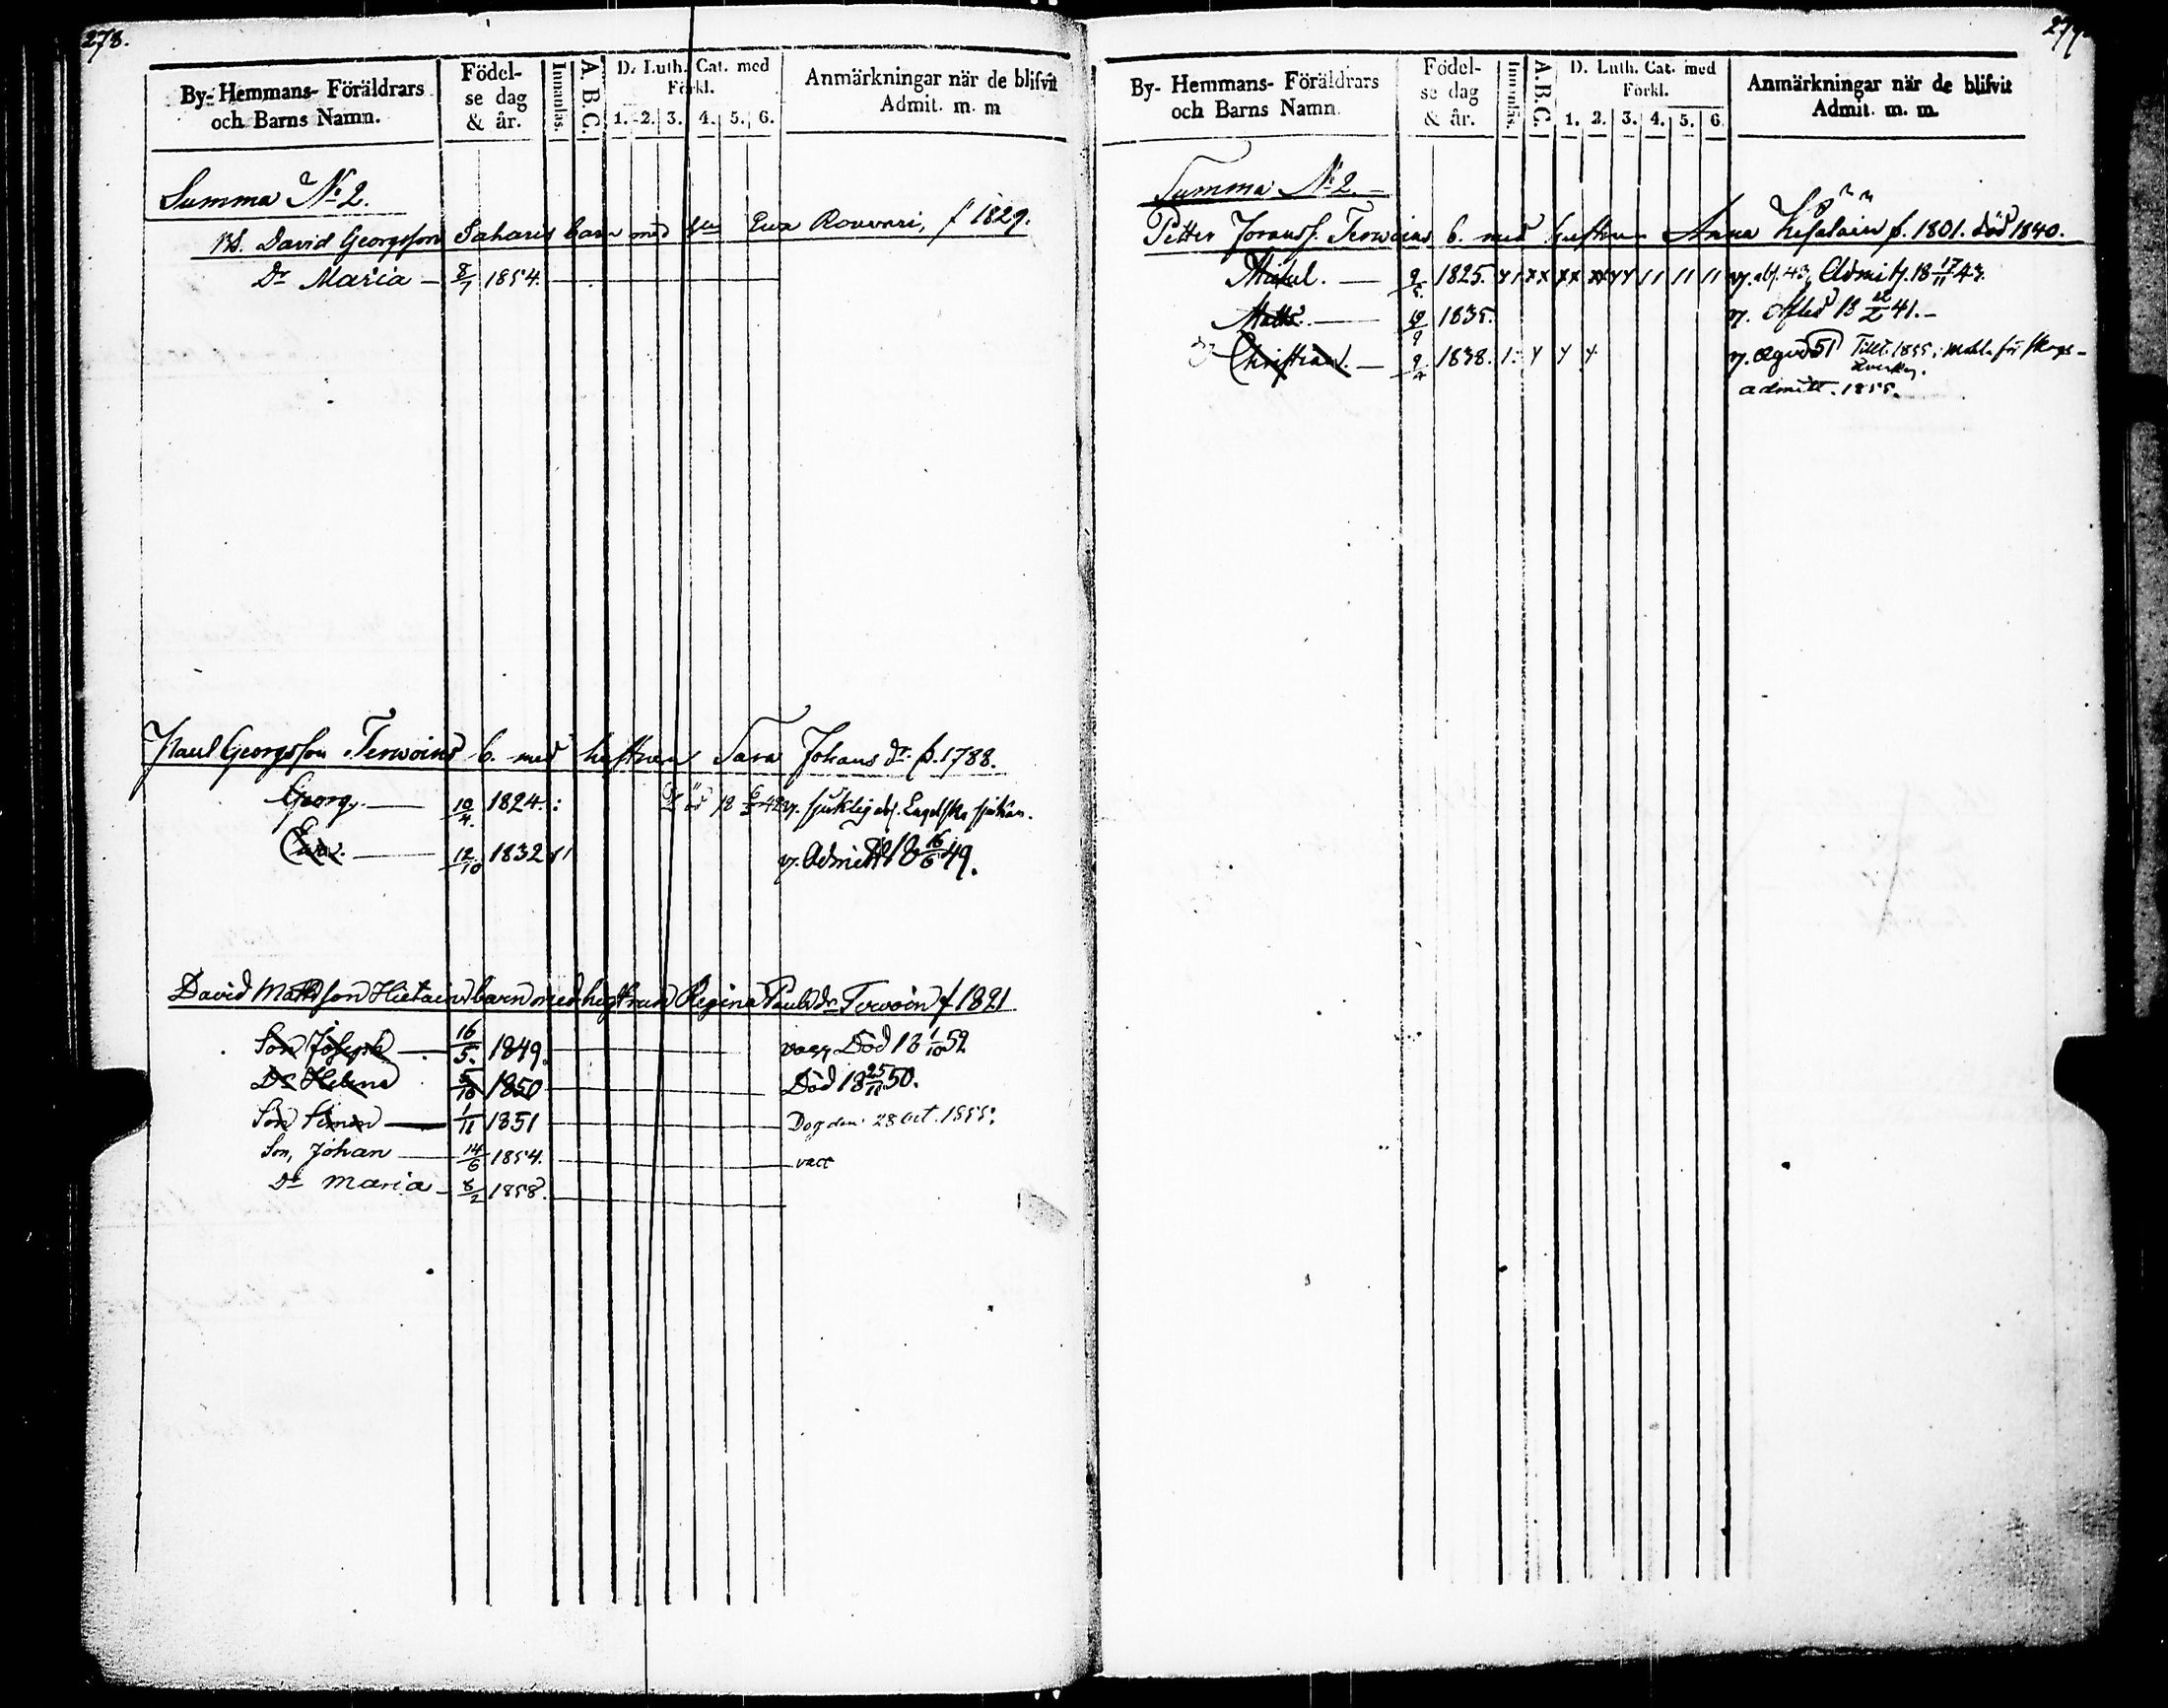 278.
By- Hemmans- Föräldrars och Barns Namn.
Födel- se dag & år.
Innanläs.
A. B. C.
D. Luth. Cat. med Förkl.
1. 2. 3. 4. 5. 6.
Anmärkningar när de blifvit Admit. m. m
Summa No 2.
David Georgsson Saharis barn med Ewa Rouvari, f 1829.
Dr Maria — 8/7 1854.
Paul Georgsson Terwoins b. med hustrun Sara Johans dr f. 1788.
Georg. — 10/4. 1824. v. sjuklig abs. Engelska sjukan.
Ewa. — 12/10 1832 v. Admitt 18 16/6 49.
David Mattsson Hietains barn med hustrun Regina Pauls dr Tervoin f 1821
Son Joseph — 16/5. 1849. Död 18 1/10 52
Dr Helena 5/10 1850 Död 18 25/11 50.
Son Simon — 1/11 1851 Dog den 28 Oct. 1855.
Son, Johan — 14/6 1854. vacc
Dr Maria — 8/2 1858.
279.
By- Hemmans- Föräldrars och Barns Namn.
Födel- se dag & år.
Innanläs.
A. B. C.
D. Luth. Cat. med Förkl.
1. 2. 3. 4. 5. 6.
Anmärkningar när de blifvit Admit. m. m.
Summa No 2. —
Petter Joranss. Terwoins b. med hustrun Anna f. 1801. död 1840.
Mikel. — 9/5. 1825. v. abs. 43, Admitt. 18 17/11 43.
Matts. — 1835. v. Afled 18 41. —
Christian. — 9/4 1838. v.
admitt. 1855.